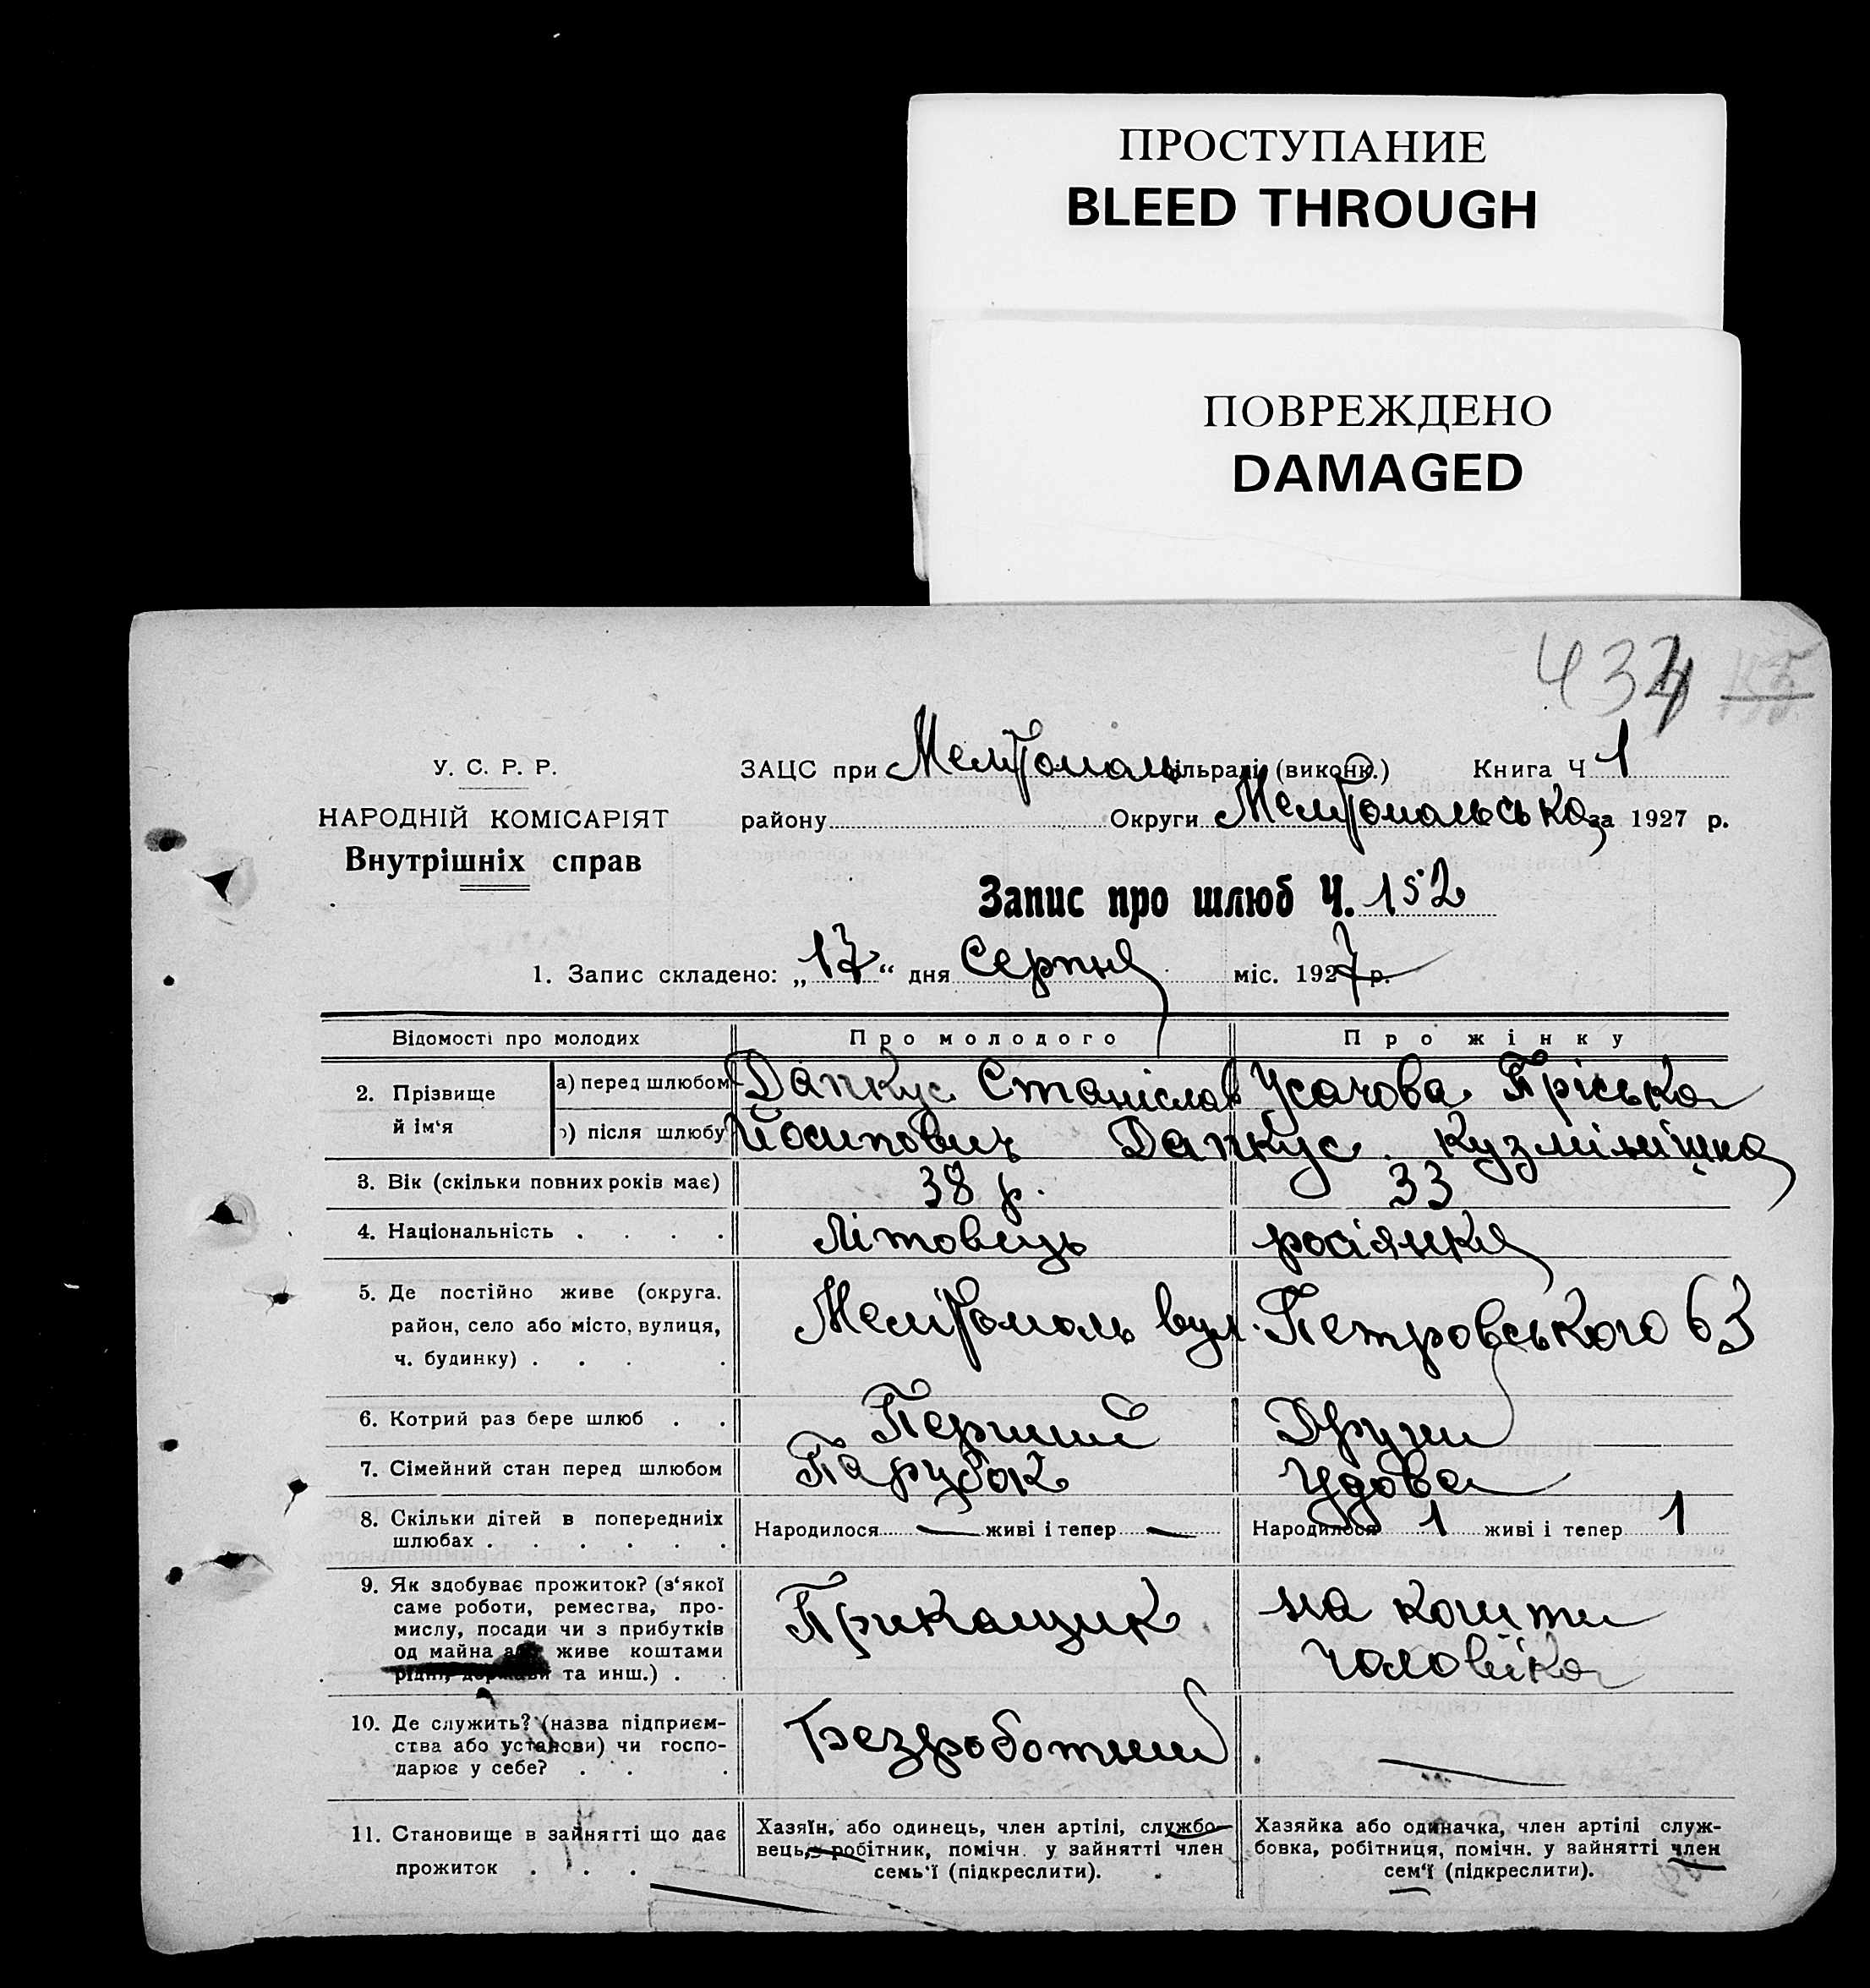 ПРОСТУПАНИЕ
BLEED THROUGH
ПОВРЕЖДЕНО
DAMAGED
434
У. С. Р. Р.
НАРОДНІЙ КОМІСАРІЯТ
Внутрішніх справ
ЗАЦС при Мелітополь сільраді (виконк.) Книга Ч 1
району Округи Мелітопольська за 1927 р.
Запис про шлюб Ч. 152
1. Запис складено: „17“ дня Серпня міс. 1927 р.
Відомості про молодих Про молодого Про жінку
2. Прізвище й ім‘я
а) перед шлюбом Дапкус Станіслав Усачова Пріська
б) після шлюбу Йосипович Дапкус Кузмінішна
3. Вік (скільки повних років має) 38 р. 33
4. Національність . . . . Літовець росіянка
5. Де постійно живе (округа.
район, село або місто, вулиця,
ч. будинку) . . . .
Мелітополь вул. Петровського 63
6. Котрий раз бере шлюб . . Перший Други
7. Сімейний стан перед шлюбом Парубок удова
8. Скільки дітей в попередниіх
шлюбах . . . . . .
Народилося — живі і тепер — Народилося 1 живі і тепер 1
9. Як здобуває прожиток? (з‘якої
саме роботи, ремества, про-
мислу, посади чи з прибутків
од майна або живе коштами
рідні, держави та инш.) . .
Прикащик
на кошти
чоловіка
10. Де служить? (назва підприєм-
ства або установи) чи госпо-
дарює у себе? . . .
Безроботний —
11. Становище в зайнятті що дає
прожиток . . . .
Хазяїн, або одинець, член артілі, службо-
вець, робітник, помічн. у зайнятті член
семь‘ї (підкреслити).
Хазяйка або одиначка, член артілі служ-
бовка, робітниця, помічн. у зайнятті член
сем‘ї (підкреслити).